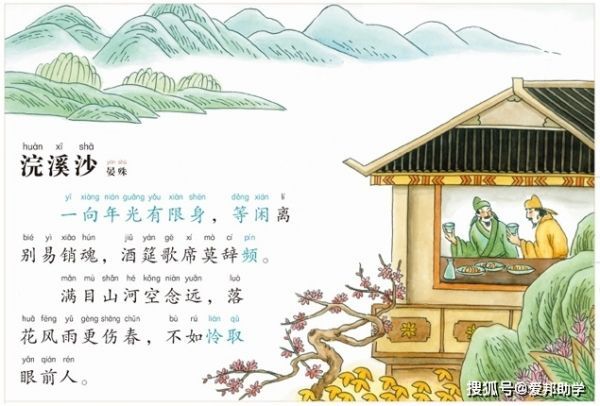 huàn xī shā
浣溪沙
yàn shū
晏殊
yí xiàng nián guāng yǒu xiàn shēn děng xián lí
一向年光有限身，等闲离
bié yì xiāo hún jiǔ yán gē xí mò cí pín
别易销魂，酒筵歌席莫辞频。
mǎn mù shān hé kōng niàn yuǎn luò
满目山河空念远，落
huā fēng yǔ gèng shāng chūn bù rú lián qǔ
花风雨更伤春，不如怜取
yǎn qián rén
眼前人。
搜狐号@爱邦助学